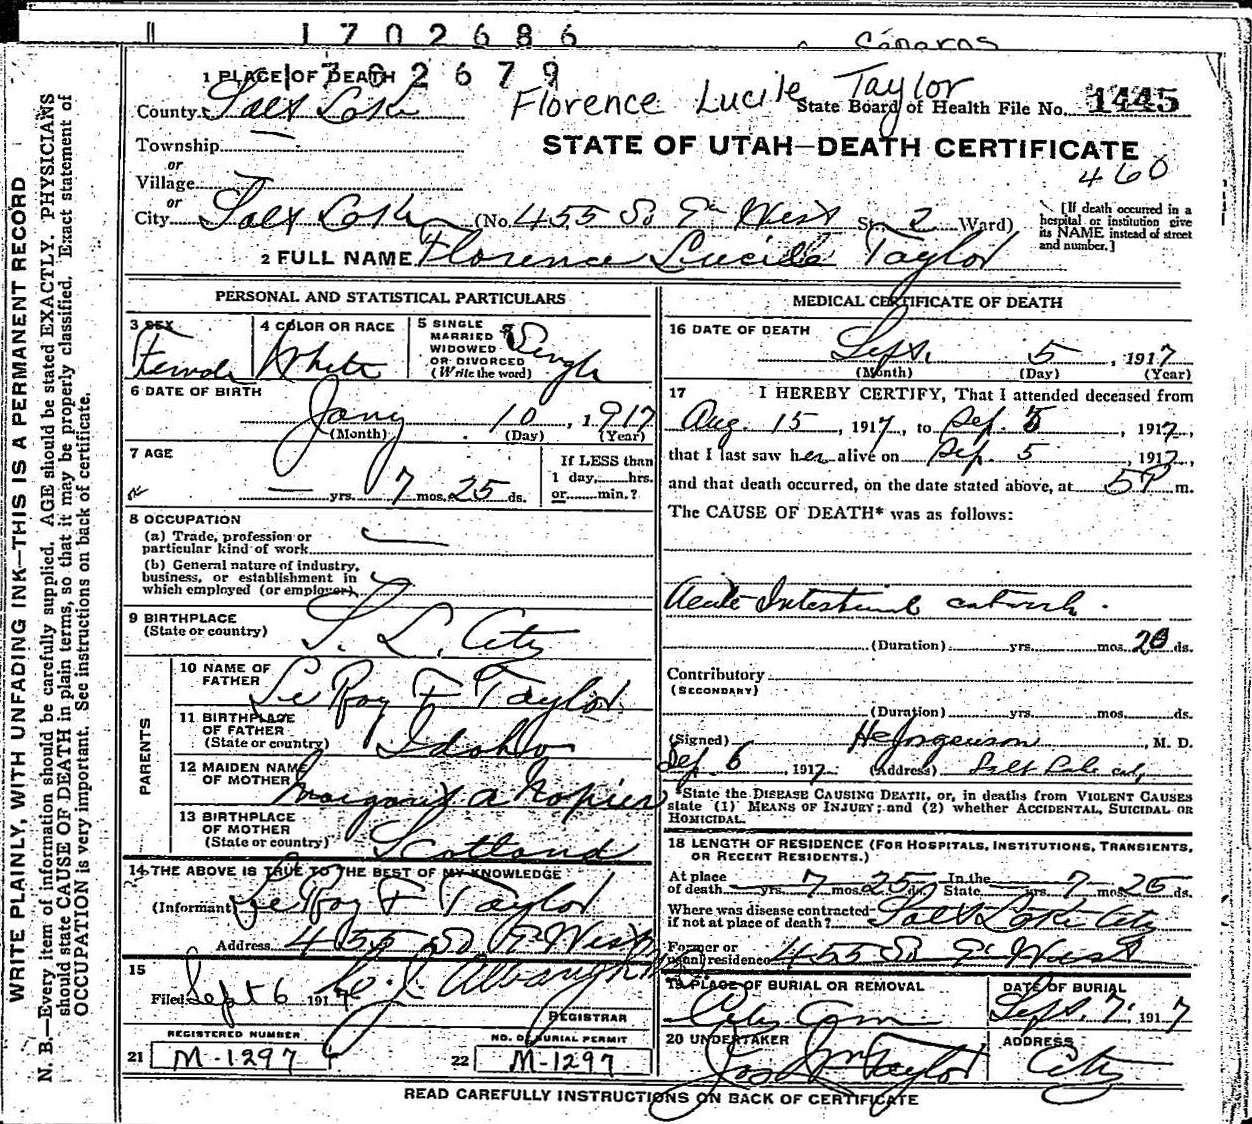 1702686
1702679
1 PLACE OF DEATH
Florence Lucile Taylor
County Salt Lake
State Board of Health File No. 1445
Township
STATE OF UTAH—DEATH CERTIFICATE
460
or
Village
or
City Salt Lake (No. 455 So West St. 2 Ward)
[If death occurred in a
hospital or institution give
its NAME instead of street
and number.]
2 FULL NAME Florence Lucile Taylor
PERSONAL AND STATISTICAL PARTICULARS
3 SEX
Female
4 COLOR OR RACE
White
5 SINGLE
MARRIED
WIDOWED
OR DIVORCED
(Write the word)
Single
6 DATE OF BIRTH
Jany 10, 1917
(Month) (Day) (Year)
7 AGE
— yrs. 7 mos. 25 ds.
If LESS than
1 day, hrs.
or min.?
8 OCCUPATION
(a) Trade, profession or
particular kind of work
(b) General nature of industry,
business, or establishment in
which employed (or employer)
9 BIRTHPLACE
(State or country)
S. L. City
PARENTS
10 NAME OF
FATHER
Le Roy F Taylor
11 BIRTHPLACE
OF FATHER
(State or country)
Idaho
12 MAIDEN NAME
OF MOTHER
Margaret A Napier
13 BIRTHPLACE
OF MOTHER
(State or country)
Scotland
14 THE ABOVE IS TRUE TO THE BEST OF MY KNOWLEDGE
(Informant) Le Roy F Taylor
Address 455 So West
15
Filed Sept 6 1917
REGISTRAR
REGISTERED NUMBER
21 M-1297
NO. OF BURIAL PERMIT
22 M-1297
MEDICAL CERTIFICATE OF DEATH
16 DATE OF DEATH
Sept. 5, 1917
(Month) (Day) (Year)
17 I HEREBY CERTIFY, That I attended deceased from
Aug. 15, 1917, to Sep. 5, 1917,
that I last saw her alive on Sep. 5, 1917,
and that death occurred, on the date stated above, at 5 P m.
The CAUSE OF DEATH* was as follows:
Acute Intestinal catarrh.
(Duration) yrs. mos. 20 ds.
Contributory
(SECONDARY)
(Duration) yrs. mos. ds.
(Signed) Jorgenson, M. D.
Sep 6, 1917 (Address) Salt Lake City
State the DISEASE CAUSING DEATH, or, in deaths from VIOLENT CAUSES
state (1) MEANS OF INJURY; and (2) whether ACCIDENTAL, SUICIDAL OR
HOMICIDAL.
18 LENGTH OF RESIDENCE (FOR HOSPITALS, INSTITUTIONS, TRANSIENTS,
OR RECENT RESIDENTS.)
At place
of death — yrs. 7 mos. 25 ds.
In the
State — yrs. 7 mos. 25 ds.
Where was disease contracted
if not at place of death? Salt Lake City
Former or
usual residence 455 So West
19 PLACE OF BURIAL OR REMOVAL
City Cem
DATE OF BURIAL
Sept. 7, 1917
20 UNDERTAKER
Jos Wm Taylor
ADDRESS
City
READ CAREFULLY INSTRUCTIONS ON BACK OF CERTIFICATE
WRITE PLAINLY, WITH UNFADING INK—THIS IS A PERMANENT RECORD
N. B.—Every item of information should be carefully supplied. AGE should be stated EXACTLY. PHYSICIANS
should state CAUSE OF DEATH in plain terms, so that it may be properly classified. Exact statement of
OCCUPATION is very important. See instructions on back of certificate.